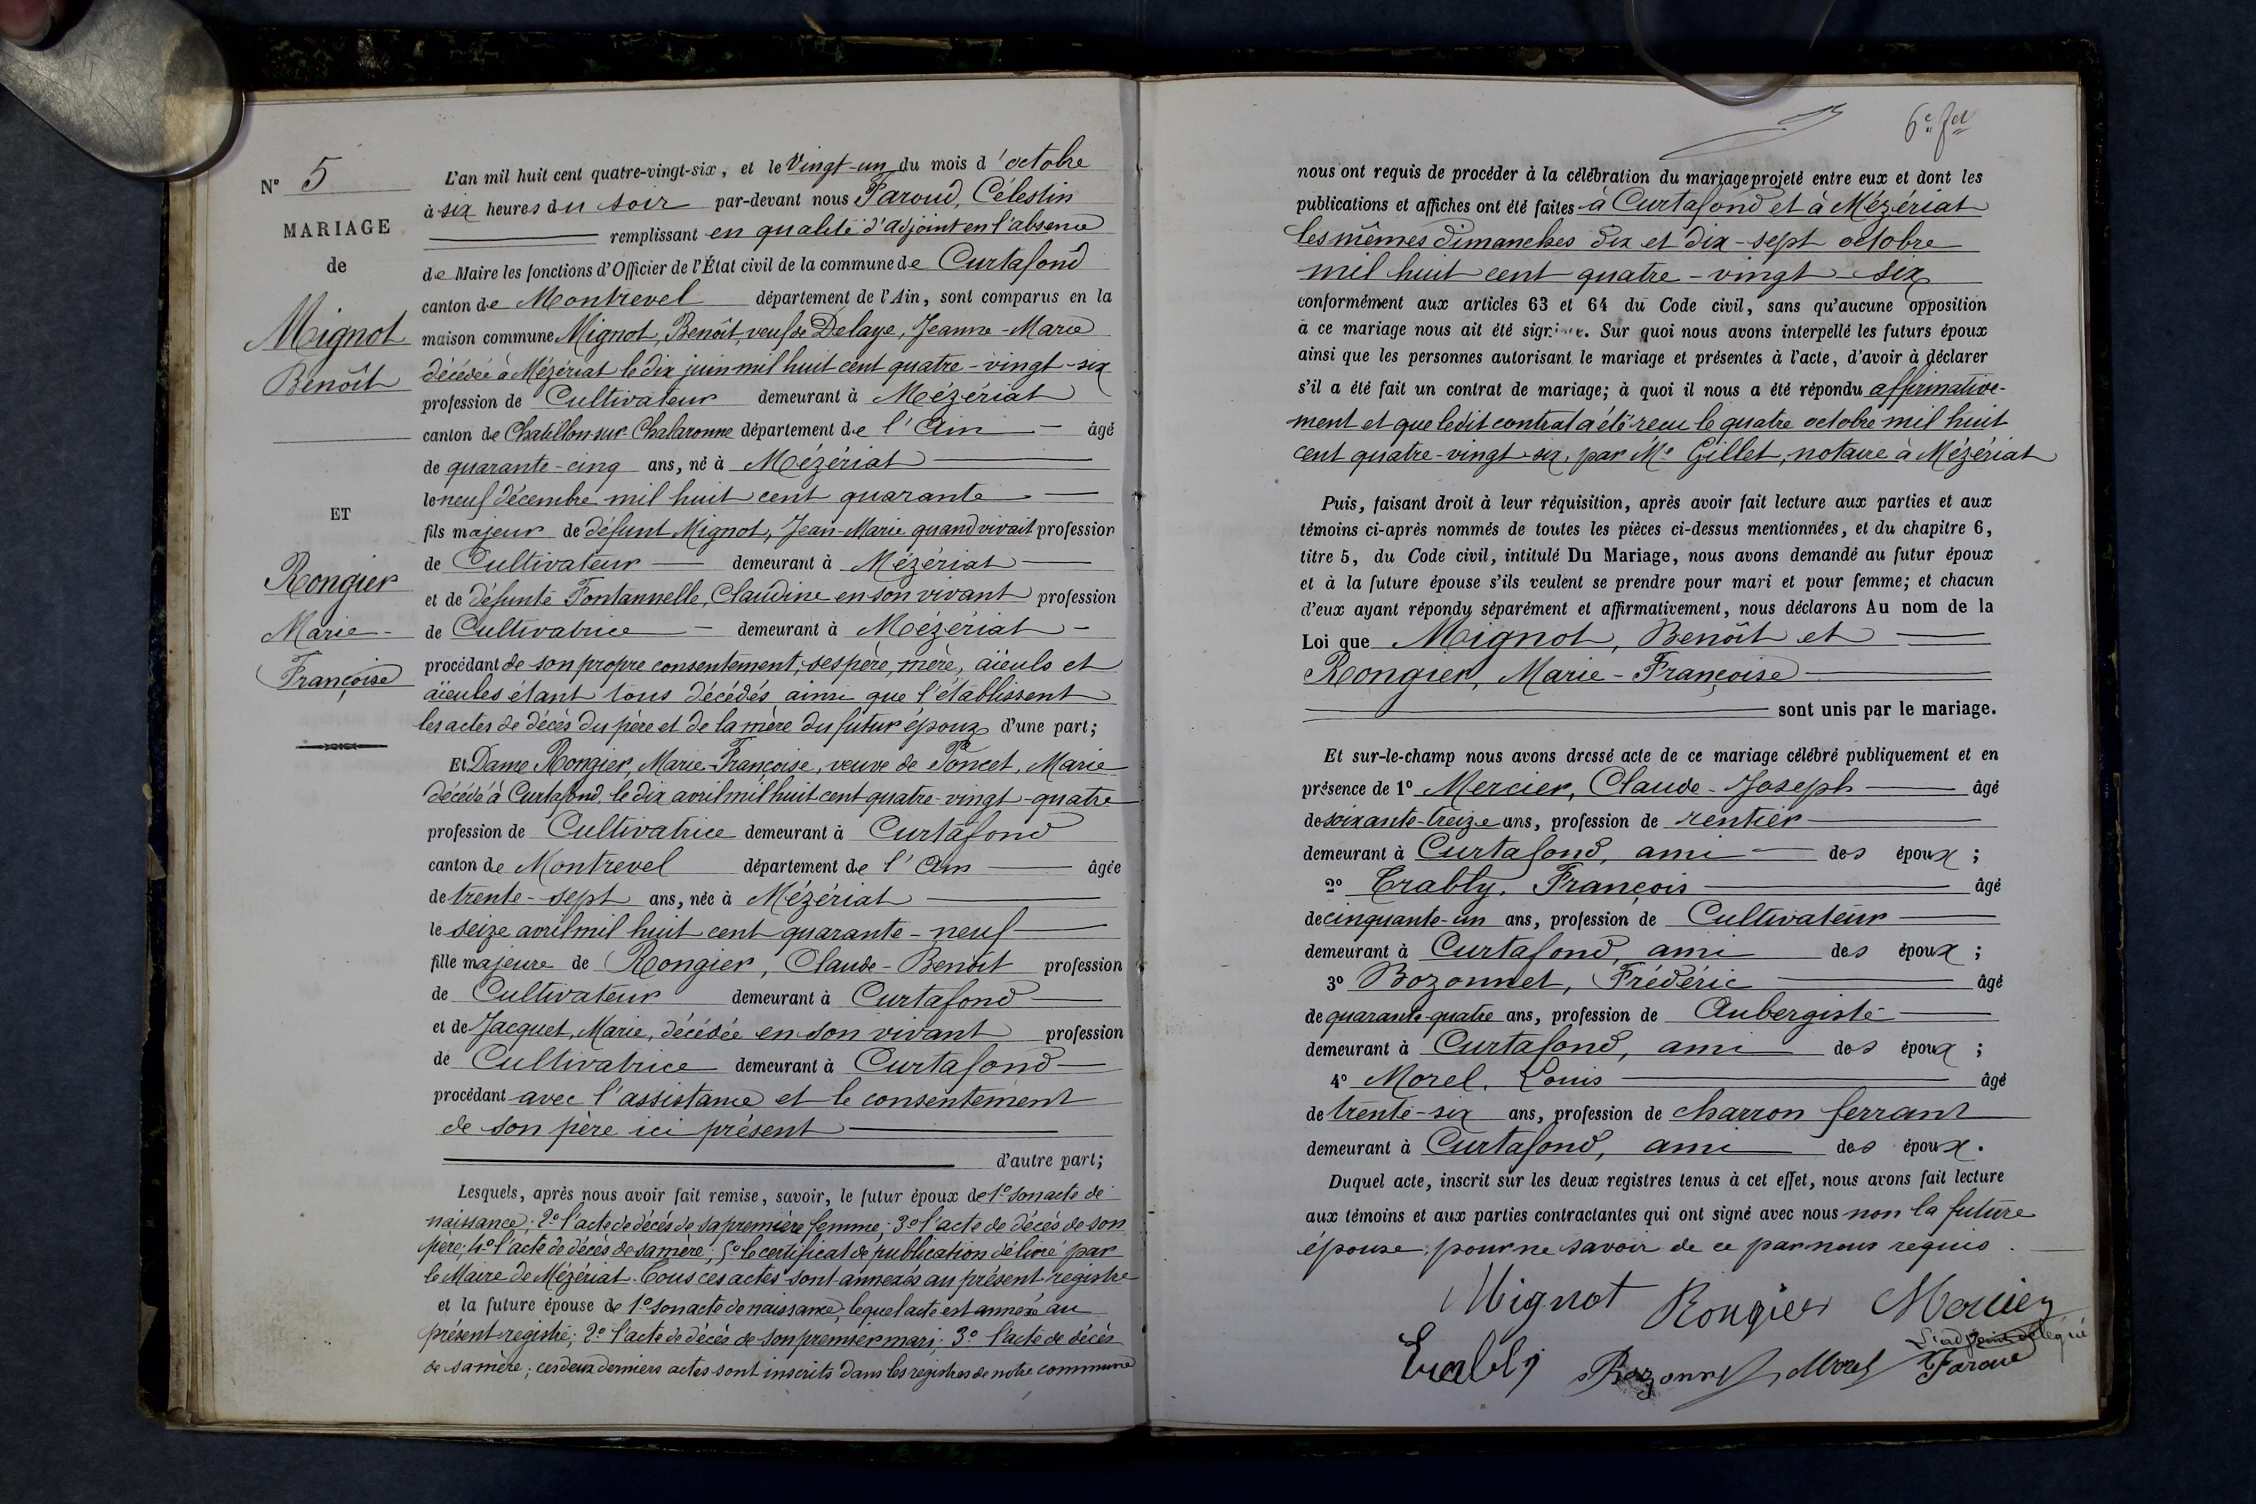 N° 5
MARIAGE
de
Mignot
Benoît
ET
Rongier
Marie-
Françoise
L'an mil huit cent quatre-vingt-six, et le Vingt-un du mois d'octobre
à six heures du soir par-devant nous Paroud, Célestin
remplissant en qualité d'adjoint en l'absence
de Maire les fonctions d'Officier de l'État civil de la commune de Curtafond
canton de Montrevel département de l'Ain, sont comparus en la
maison commune Mignot, Benoît, veuf de Delaye, Jeanne-Marie
décédée à Mézériat le dix juin mil huit cent quatre-vingt-six
profession de Cultivateur demeurant à Mézériat
canton de Chatillon sur Chalaronne département de l'Ain âgé
de quarante-cinq ans, né à Mézériat
le neuf décembre mil huit cent quarante
fils majeur de défunt Mignot, Jean-Marie quand vivait profession
de Cultivateur demeurant à Mézériat
et de défunte Fontannelle, Claudine en son vivant profession
de Cultivatrice demeurant à Mézériat
procédant de son propre consentement, ses père, mère, aïeuls et
aïeules étant tous décédés ainsi que l'établissent
les actes de décès du père et de la mère du futur époux d'une part;
Et Dame Rongier, Marie-Françoise, veuve de Poncet, Marie
décédé à Curtafond, le dix avril mil huit cent quatre-vingt-quatre
profession de Cultivatrice demeurant à Curtafond
canton de Montrevel département de l'Ain âgée
de trente-sept ans, née à Mézériat
le seize avril mil huit cent quarante-neuf
fille majeure de Rongier, Claude-Benoît profession
de Cultivateur demeurant à Curtafond
et de Jacquet, Marie, décédée en son vivant profession
de Cultivatrice demeurant à Curtafond
procédant avec l'assistance et le consentement
de son père ici présent
d'autre part;
Lesquels, après nous avoir fait remise, savoir, le futur époux de 1° son acte de
naissance; 2° l'acte de décès de sa première femme; 3° l'acte de décès de son
père; 4° l'acte de décès de sa mère; 5° le certificat de publication délivré par
le Maire de Mézériat. Tous ces actes sont annexés au présent registre
et la future épouse de 1° son acte de naissance, lequel acte est annexé au
présent registre; 2° l'acte de décès de son premier mari; 3° l'acte de décès
de sa mère; ces deux derniers actes sont inscrits dans les registres de notre commune
6e fet
nous ont requis de procéder à la célébration du mariage projeté entre eux et dont les
publications et affiches ont été faites à Curtafond et à Mézériat
les mêmes dimanches dix et dix-sept octobre
mil huit cent quatre-vingt-six
conformément aux articles 63 et 64 du Code civil, sans qu'aucune opposition
à ce mariage nous ait été signifiée. Sur quoi nous avons interpellé les futurs époux
ainsi que les personnes autorisant le mariage et présentes à l'acte, d'avoir à déclarer
s'il a été fait un contrat de mariage; à quoi il nous a été répondu affirmative-
ment et que ledit contrat a été reçu le quatre octobre mil huit
cent quatre-vingt-six, par Me Gillet, notaire à Mézériat
Puis, faisant droit à leur réquisition, après avoir fait lecture aux parties et aux
témoins ci-après nommés de toutes les pièces ci-dessus mentionnées, et du chapitre 6,
titre 5, du Code civil, intitulé Du Mariage, nous avons demandé au futur époux
et à la future épouse s'ils veulent se prendre pour mari et pour femme; et chacun
d'eux ayant répondu séparément et affirmativement, nous déclarons Au nom de la
Loi que Mignot, Benoît et
Rongier, Marie-Françoise
sont unis par le mariage.
Et sur-le-champ nous avons dressé acte de ce mariage célébré publiquement et en
présence de 1° Mercier, Claude-Joseph âgé
de soixante-treize ans, profession de rentier
demeurant à Curtafond, ami des époux;
2° Trably, François âgé
de cinquante-un ans, profession de Cultivateur
demeurant à Curtafond, ami des époux;
3° Bozonnet, Frédéric âgé
de quarante-quatre ans, profession de Aubergiste
demeurant à Curtafond, ami des époux;
4° Morel, Louis âgé
de trente-six ans, profession de charron ferrant
demeurant à Curtafond, ami des époux.
Duquel acte, inscrit sur les deux registres tenus à cet effet, nous avons fait lecture
aux témoins et aux parties contractantes qui ont signé avec nous non la future
épouse pour ne savoir de ce par nous requis.
Mignot Rongier Mercier
L'adjoint délégué
Trably Bozonnet Morel Paroud